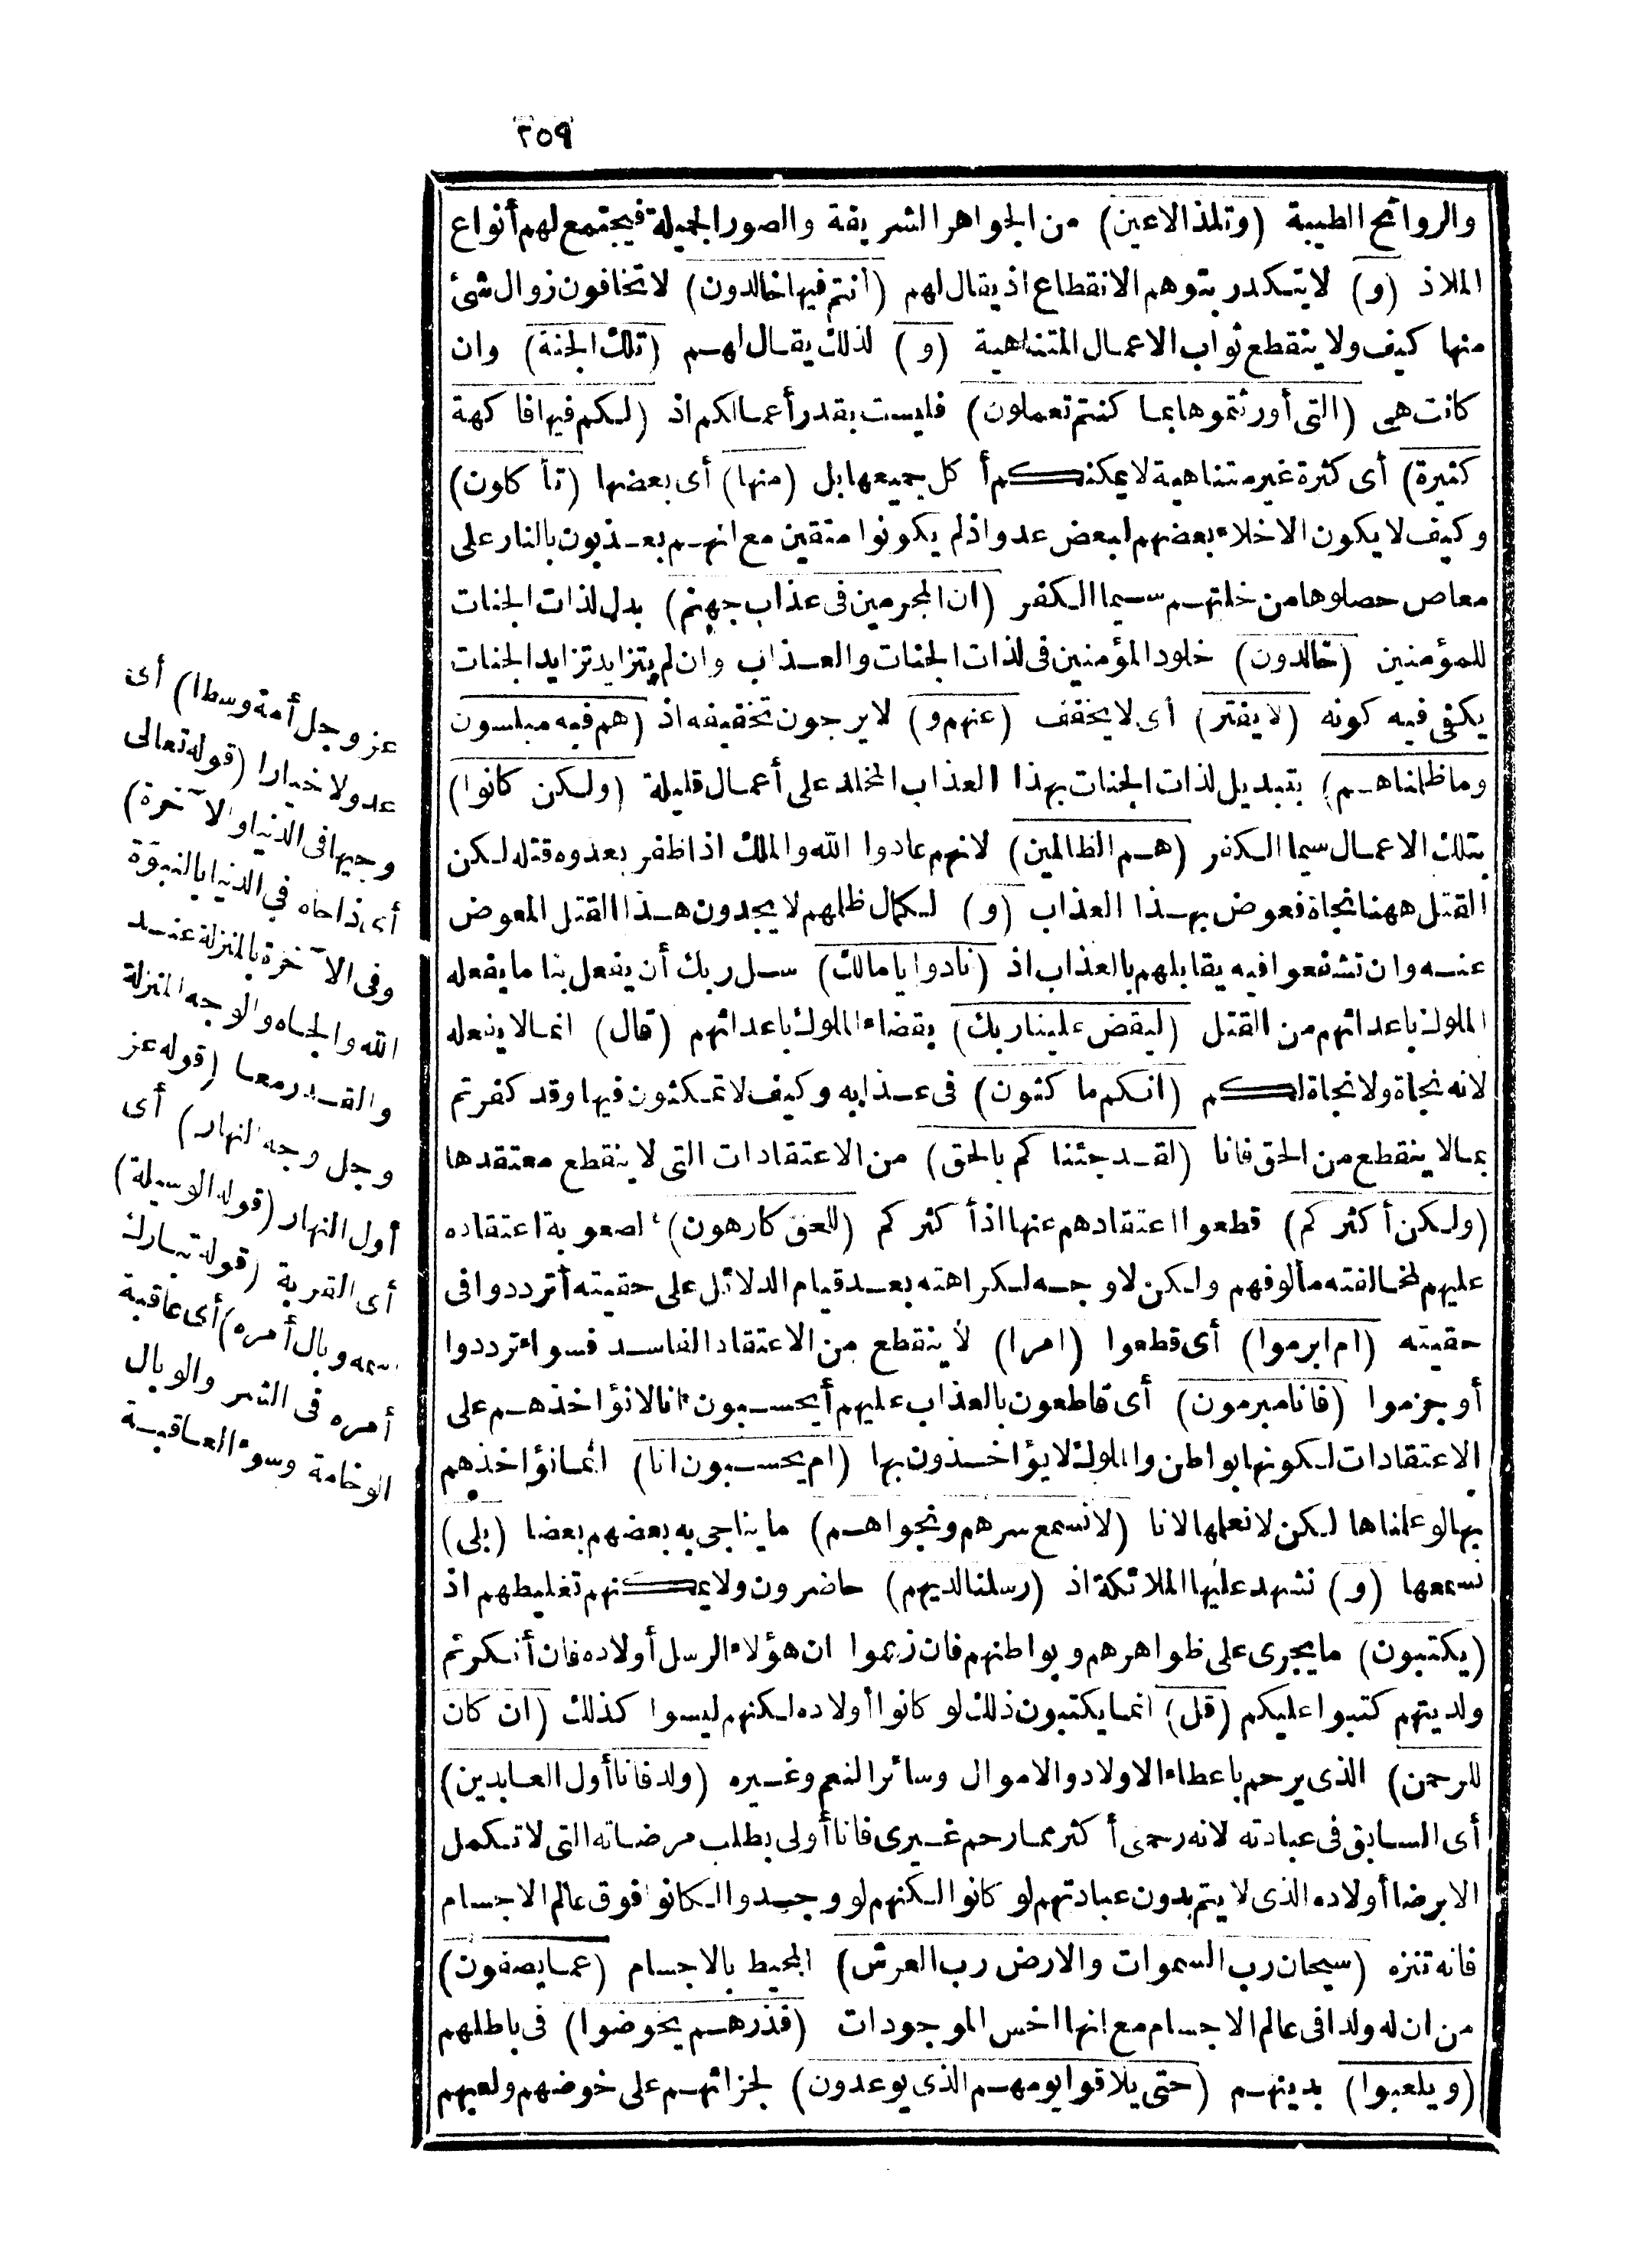 ٢٥٩
والروائح الطيبة (وتلذ الاعين) من الجواهر الشريفة والصور الجميلة فيجتمع لهم أنواع
الملاذ (و) لا يتكدر بتوهم الانقطاع اذ يقال لهم (أنتم فيها خالدون) لا تخافون زوال شئ
منها كيف ولا ينقطع ثواب الاعمال المتناهية (و) لذلك يقال لهم (تلك الجنة) وان
كانت هى (التى أورثتموها بما كنتم تعملون) فليست بقدر أعمالكم اذ (لكم فيها فاكهة
كثيرة) أى كثرة غير متناهية لا يمكنكم أكل جميعها بل (منها) أى بعضها (تأكلون)
وكيف لا يكون الاخلاء بعضهم لبعض عدو اذ لم يكونوا متقين مع انهم يعذبون بالنار على
معاص حصلوها من خلتهم سيما الكفر (ان المجرمين فى عذاب جهنم) بدل لذات الجنات
للمؤمنين (خالدون) خلود المؤمنين فى لذات الجنات والعذاب وان لم يتزايد تزايد الجنات
يكفى فيه كونه (لا يفتر) أى لا يخفف (عنهم و) لا يرجون تخفيفه اذ (هم فيه مبلسون
وما ظلمناهم) بتبديل لذات الجنات بهذا العذاب المخلد على أعمال قليلة (ولكن كانوا)
بتلك الاعمال سيما الكفر (هم الظالمين) لانهم عادوا الله والملك اذا ظفر بعدوه قتله لكن
القتل ههنا نجاة فعوض بهذا العذاب (و) لكمال ظلمهم لا يجدون هذا القتل المعوض
عنه وان تشفعوا فيه يقابلهم بالعذاب اذ (نادوا يا مالك) سل ربك أن يفعل بنا ما يفعله
الملوك باعدائهم من القتل (ليقض علينا ربك) بقضاء الملوك باعدائهم (قال) انما لا يفعله
لانه نجاة ولا نجاة لكم (انكم ماكثون) فى عذابه وكيف لا تمكثون فيها وقد كفرتم
بما لا ينقطع من الحق فانا (لقد جئناكم بالحق) من الاعتقادات التى لا ينقطع معتقدها
(ولكن أكثركم) قطعوا اعتقادهم عنها اذ أكثركم (للحق كارهون) لصعوبة اعتقاده
عليهم لمخالفته مألوفهم ولكن لا وجه لكراهته بعد قيام الدلائل على حقيته أترددوا فى
حقيته (ام ابرموا) أى قطعوا (امرا) لا ينقطع من الاعتقاد الفاسد فسواء ترددوا
أو جزموا (فانا مبرمون) أى قاطعون بالعذاب عليهم أيحسبون انا لا نؤاخذهم على
الاعتقادات لكونها بواطن والملوك لا يؤاخذون بها (ام يحسبون انا) انما نؤاخذهم
بها لو علمناها لكن لا نعلمها لانا (لا نسمع سرهم ونجواهم) ما يناجى به بعضهم بعضا (بلى)
نسمعها (و) تشهد عليها الملائكة اذ (رسلنا لديهم) حاضرون ولا يمكنهم تغليطهم اذ
(يكتبون) ما يجرى على ظواهرهم وبواطنهم فان زعموا ان هؤلاء الرسل أولاده فان أنكرتم
ولديتهم كتبوا عليكم (قل) انما يكتبون ذلك لو كانوا أولاده لكنهم ليسوا كذلك (ان كان
للرحمن) الذى يرحم باعطاء الاولاد والاموال وسائر النعم وغيره (ولد فانا أول العابدين)
أى السابق فى عبادته لانه رحمنى أكثر مما رحم غيرى فانا أولى بطلب مرضاته التى لا تكمل
الا برضا أولاده الذى لا يتم بدون عبادتهم لو كانوا لكنهم لو وجدوا لكانوا فوق عالم الاجسام
فانه تنزه (سبحان رب السموات والارض رب العرش) المحيط بالاجسام (عما يصفون)
من ان له ولدا فى عالم الاجسام مع انها اخس الموجودات (فذرهم يخوضوا) فى باطلهم
(ويلعبوا) بدينهم (حتى يلاقوا يومهم الذى يوعدون) لجزائهم على خوضهم ولعبهم
عز وجل أمة وسطا) أى
عدولا خيارا (قوله تعالى
وجيها فى الدنيا والآخرة)
أى ذا جاه فى الدنيا بالنبوّة
وفى الآخرة بالمنزلة عند
الله والجاه والوجه المنزلة
والقدر معا (قوله عز
وجل وجه النهار) أى
أول النهار (قوله الوسيلة)
أى القربة (قوله تبارك
اسمه وبال أمره) أى عاقبة
أمره فى الشر والوبال
الوخامة وسوء العاقبة